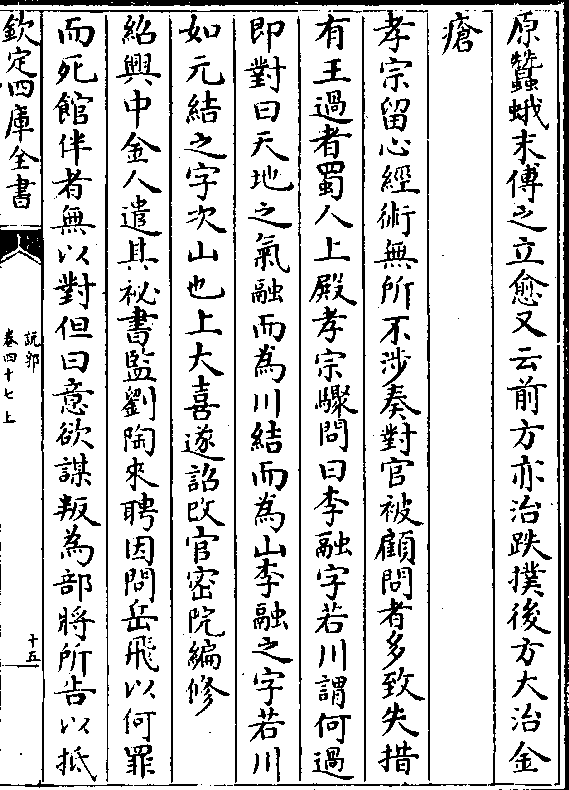 原蠶蛾末傅之立愈又云前方亦治跌撲後方大治金
瘡
孝宗留心經術無所不涉奏對官被顧問者多致失措
有王過者蜀人上殿孝宗驟問曰李融字若川謂何過
即對曰天地之氣融而為川結而為山李融之字若川
如元結之字次山也上大喜遂詔改官密院編修
紹興中金人遣其祕書監劉陶來聘因問岳飛以何罪
而死館伴者無以對但曰意欲謀叛為部將所告以抵
欽定四庫全書
說郛
卷四十七上
十五